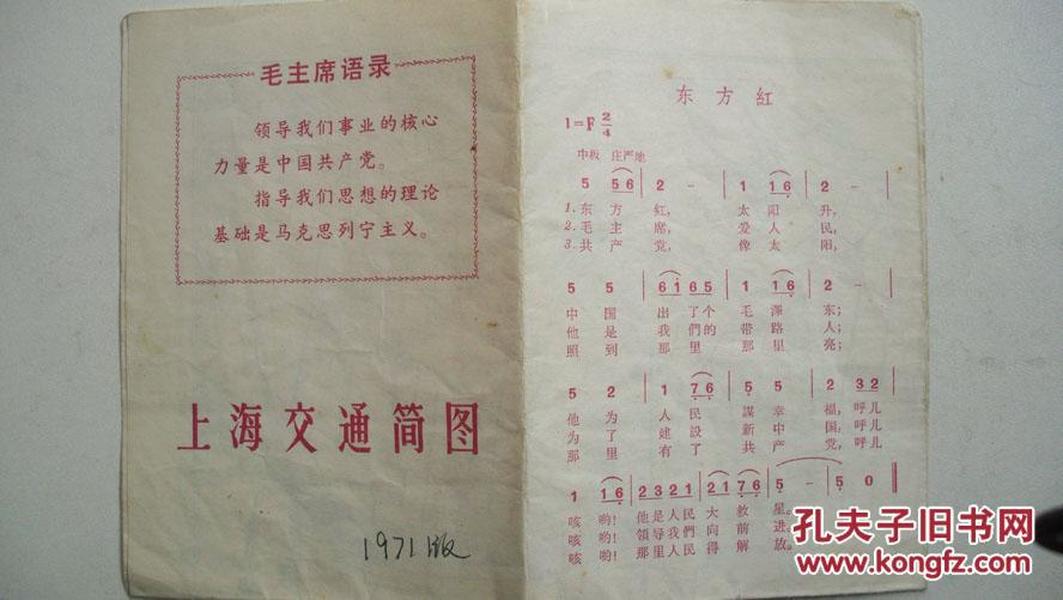 毛主席语录
领导我们事业的核心
力量是中国共产党。
指导我们思想的理论
基础是马克思列宁主义。
上海交通简图
1971版
东方红
1=F 2/4
中板 庄严地
5 56 | 2 - | 1 16 | 2 - |
1.东 方 红, 太 阳 升,
2.毛 主 席, 爱 人 民,
3.共 产 党, 像 太 阳,
5 5 | 6i 65 | 1 16 | 2 - |
中 国 出 了个 毛 澤 东;
他 是 我 們的 带 路 人;
照 到 那 里 那 里 亮;
5 2 | 1 76 | 5 5 | 2 32 |
他 为 人 民 謀 幸 福, 呼儿
为 了 建 設 新 中 国, 呼儿
那 里 有 了 共 产 党, 呼儿
1 16 | 23 21 | 21 76 | 5 - | 5 0 ‖
咳 哟! 他是人民 大 救 星。
咳 哟! 領导我們 向 前 进
咳 哟! 那里人民 得 解 放。
孔夫子旧书网
www.kongfz.com